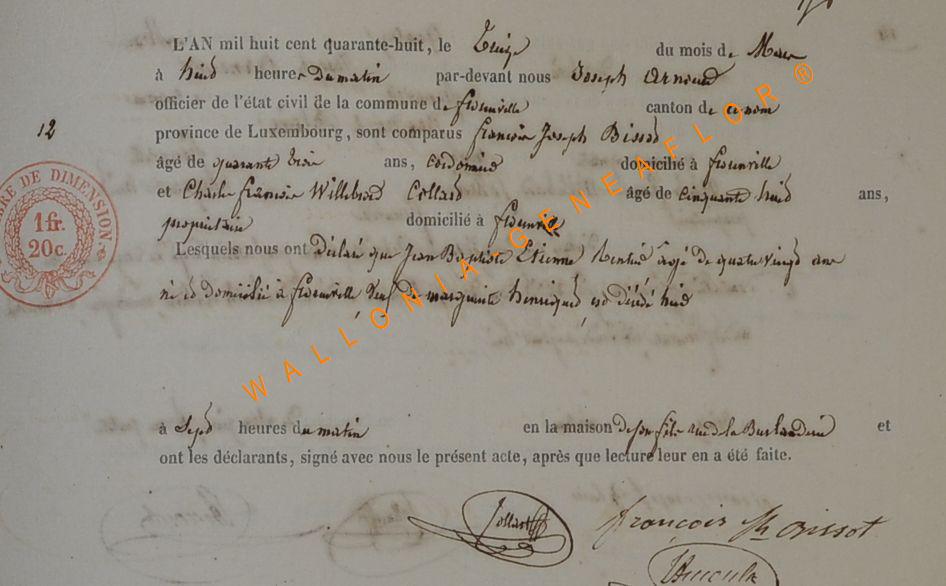 L'AN mil huit cent quarante-huit, le treize du mois de Mars
à huit heures du matin par-devant nous Joseph Arnould
officier de l'état civil de la commune de florenville canton de ce nom
12 province de Luxembourg, sont comparus françois Joseph Bissot
âgé de quarante trois ans, cordonnier domicilié à florenville
et Charles françois Willebrord Collard âgé de cinquante huit ans,
propriétaire domicilié à florenville
Lesquels nous ont déclaré que Jean Baptiste Etienne rentier âgé de quatre vingt ans
né et domicilié à florenville veuf de marguerite henriquet est décédé hier
à sept heures du matin en la maison de son fils rue de la et
ont les déclarants, signé avec nous le présent acte, après que lecture leur en a été faite.
DE DIMENSION
1 fr.
20 c.
WALLONIA-GENEAFLOR®
Collard françois Jh Bissot